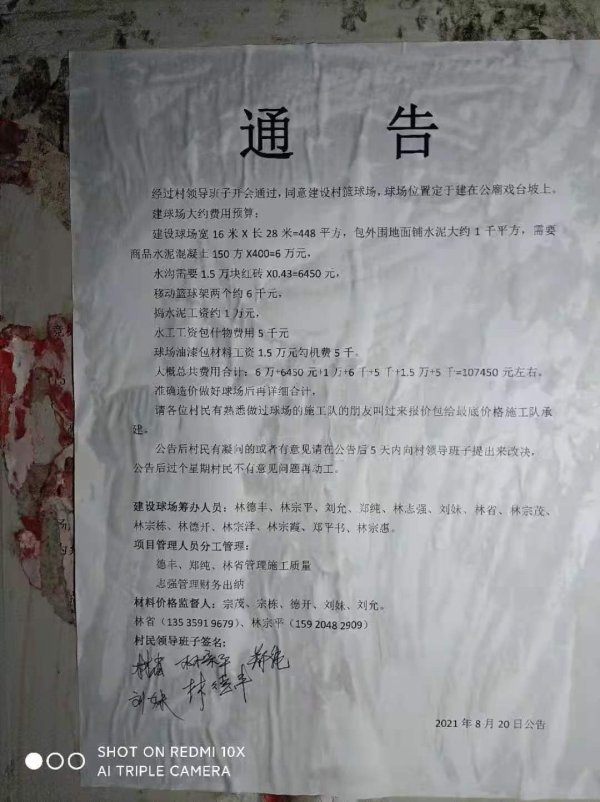 通告
经过村领导班子开会通过，同意建设村篮球场，球场位置定于建在公廟戏台坡上。
建球场大约费用预算；
建设球场宽 16 米 X 长 28 米=448 平方，包外围地面铺水泥大约 1 千平方，需要
商品水泥混凝土 150 方 X400=6 万元，
水沟需要 1.5 万块红砖 X0.43=6450 元，
移动篮球架两个约 6 千元，
捣水泥工资约 1 万元，
水工工资包什物费用 5 千元
球场油漆包材料工资 1.5 万元勾机费 5 千。
大概总共费用合计：6 万+6450 元+1 万+6 千+5 千+1.5 万+5 千=107450 元左右。
准确造价做好球场后再详细合计，
请各位村民有熟悉做过球场的施工队的朋友叫过来报价包给最底价格施工队承
建。
公告后村民有凝问的或者有意见请在公告后 5 天内向村领导班子提出来改决，
公告后过个星期村民不有意见问题再动工。
建设球场筹办人员：林德丰、林宗平、刘允、郑纯、林志强、刘妹、林省、林宗茂、
林宗栋、林德开、林宗泽、林宗霞、郑平书、林宗惠。
项目管理人员分工管理：
德丰、郑纯、林省管理施工质量
志强管理财务出纳
材料价格监督人：宗茂、宗栋、德开、刘妹、刘允。
林省（135 3591 9679）、林宗平（159 2048 2909）
村民领导班子签名：
林省 林宗平 郑纯
刘妹 林德丰
2021 年 8 月 20 日公告
SHOT ON REDMI 10X
AI TRIPLE CAMERA